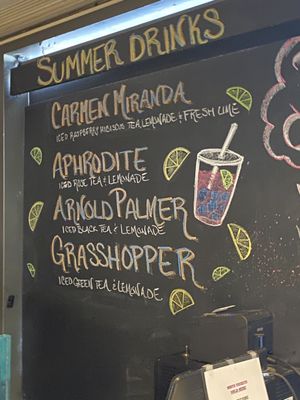 SUMMER DRINKS
CARMEN MIRANDA
ICED RASPBERRY HIBISCUS TEA, LEMONADE & FRESH LIME
APHRODITE
ICED ROSE TEA & LEMONADE
ARNOLD PALMER
ICED BLACK TEA & LEMONADE
GRASSHOPPER
ICED GREEN TEA & LEMONADE